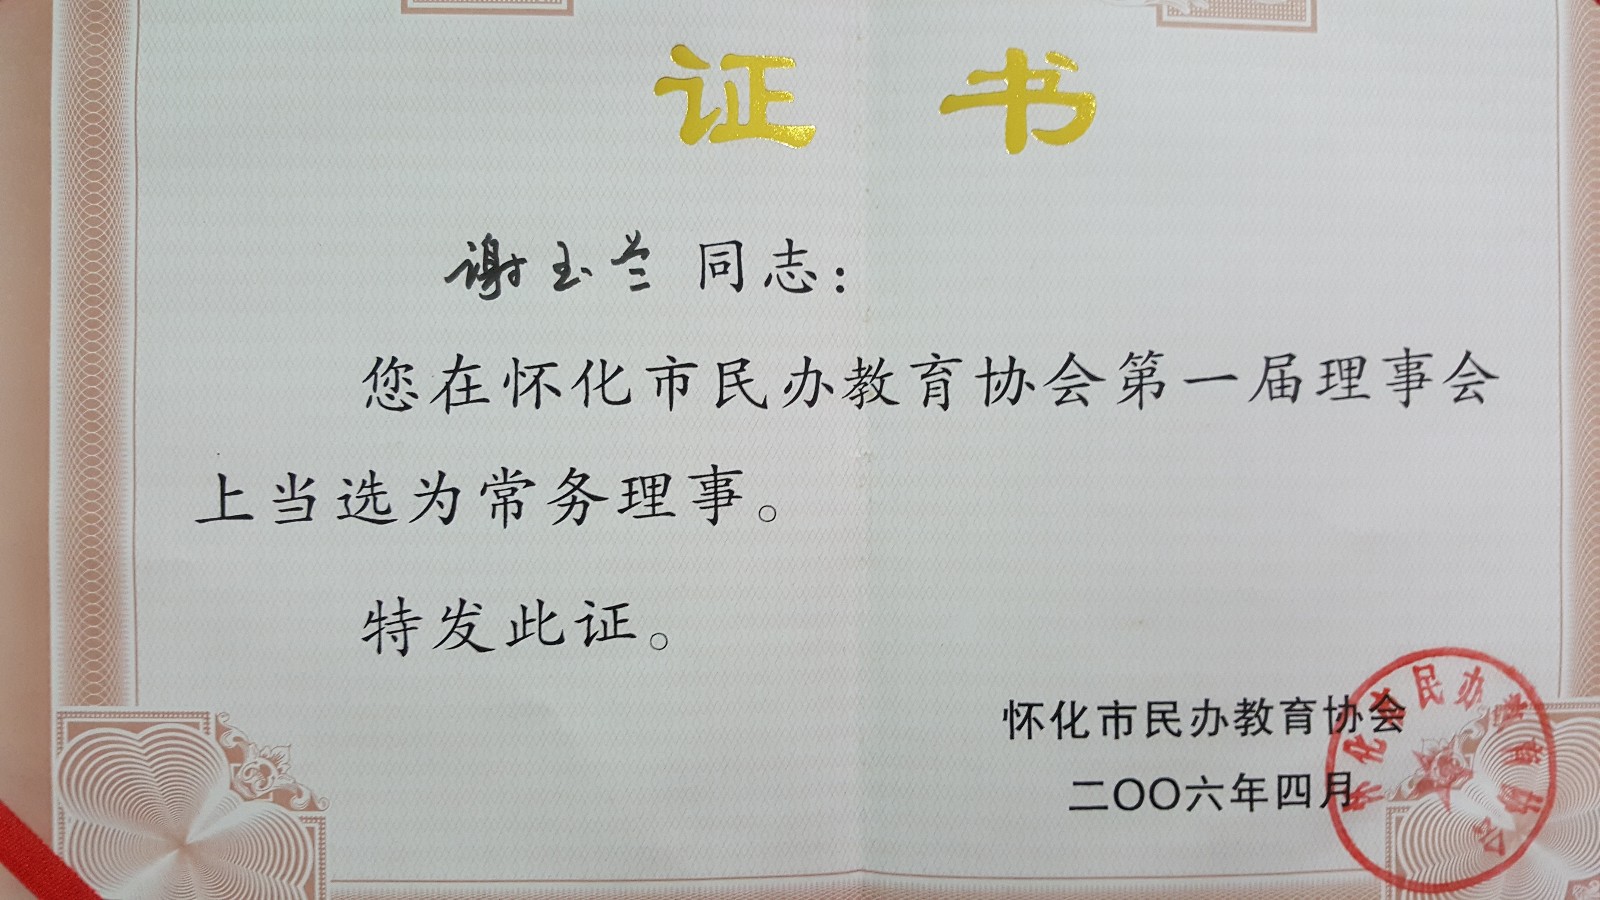 证 书
谢玉兰 同志：
您在怀化市民办教育协会第一届理事会
上当选为常务理事。
特发此证。
怀化市民办教育协会
二〇〇六年四月
怀化市民办教育协会